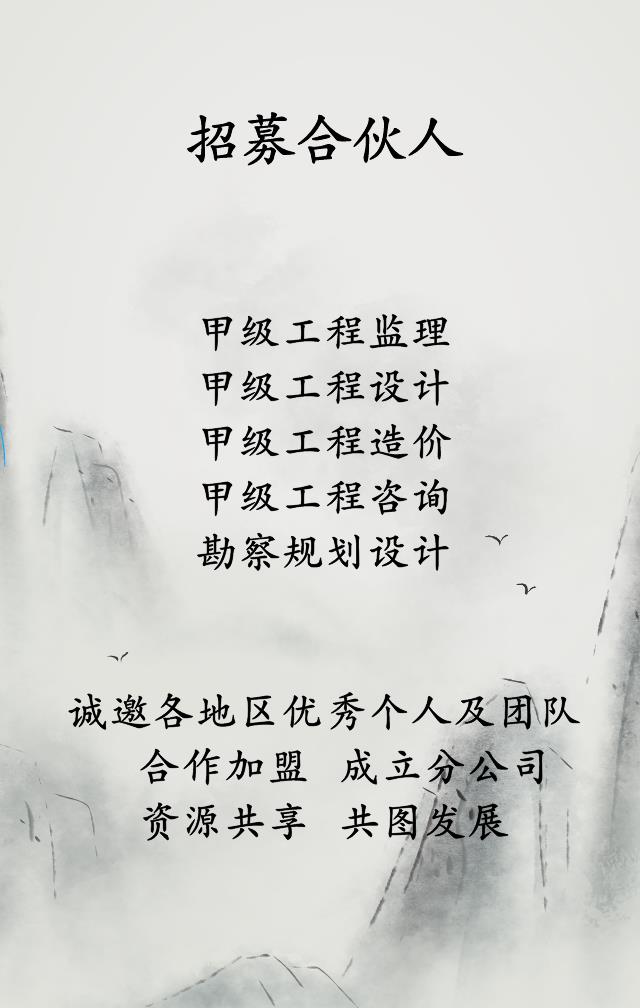 招募合伙人
甲级工程监理
甲级工程设计
甲级工程造价
甲级工程咨询
勘察规划设计
诚邀各地区优秀个人及团队
合作加盟 成立分公司
资源共享 共图发展